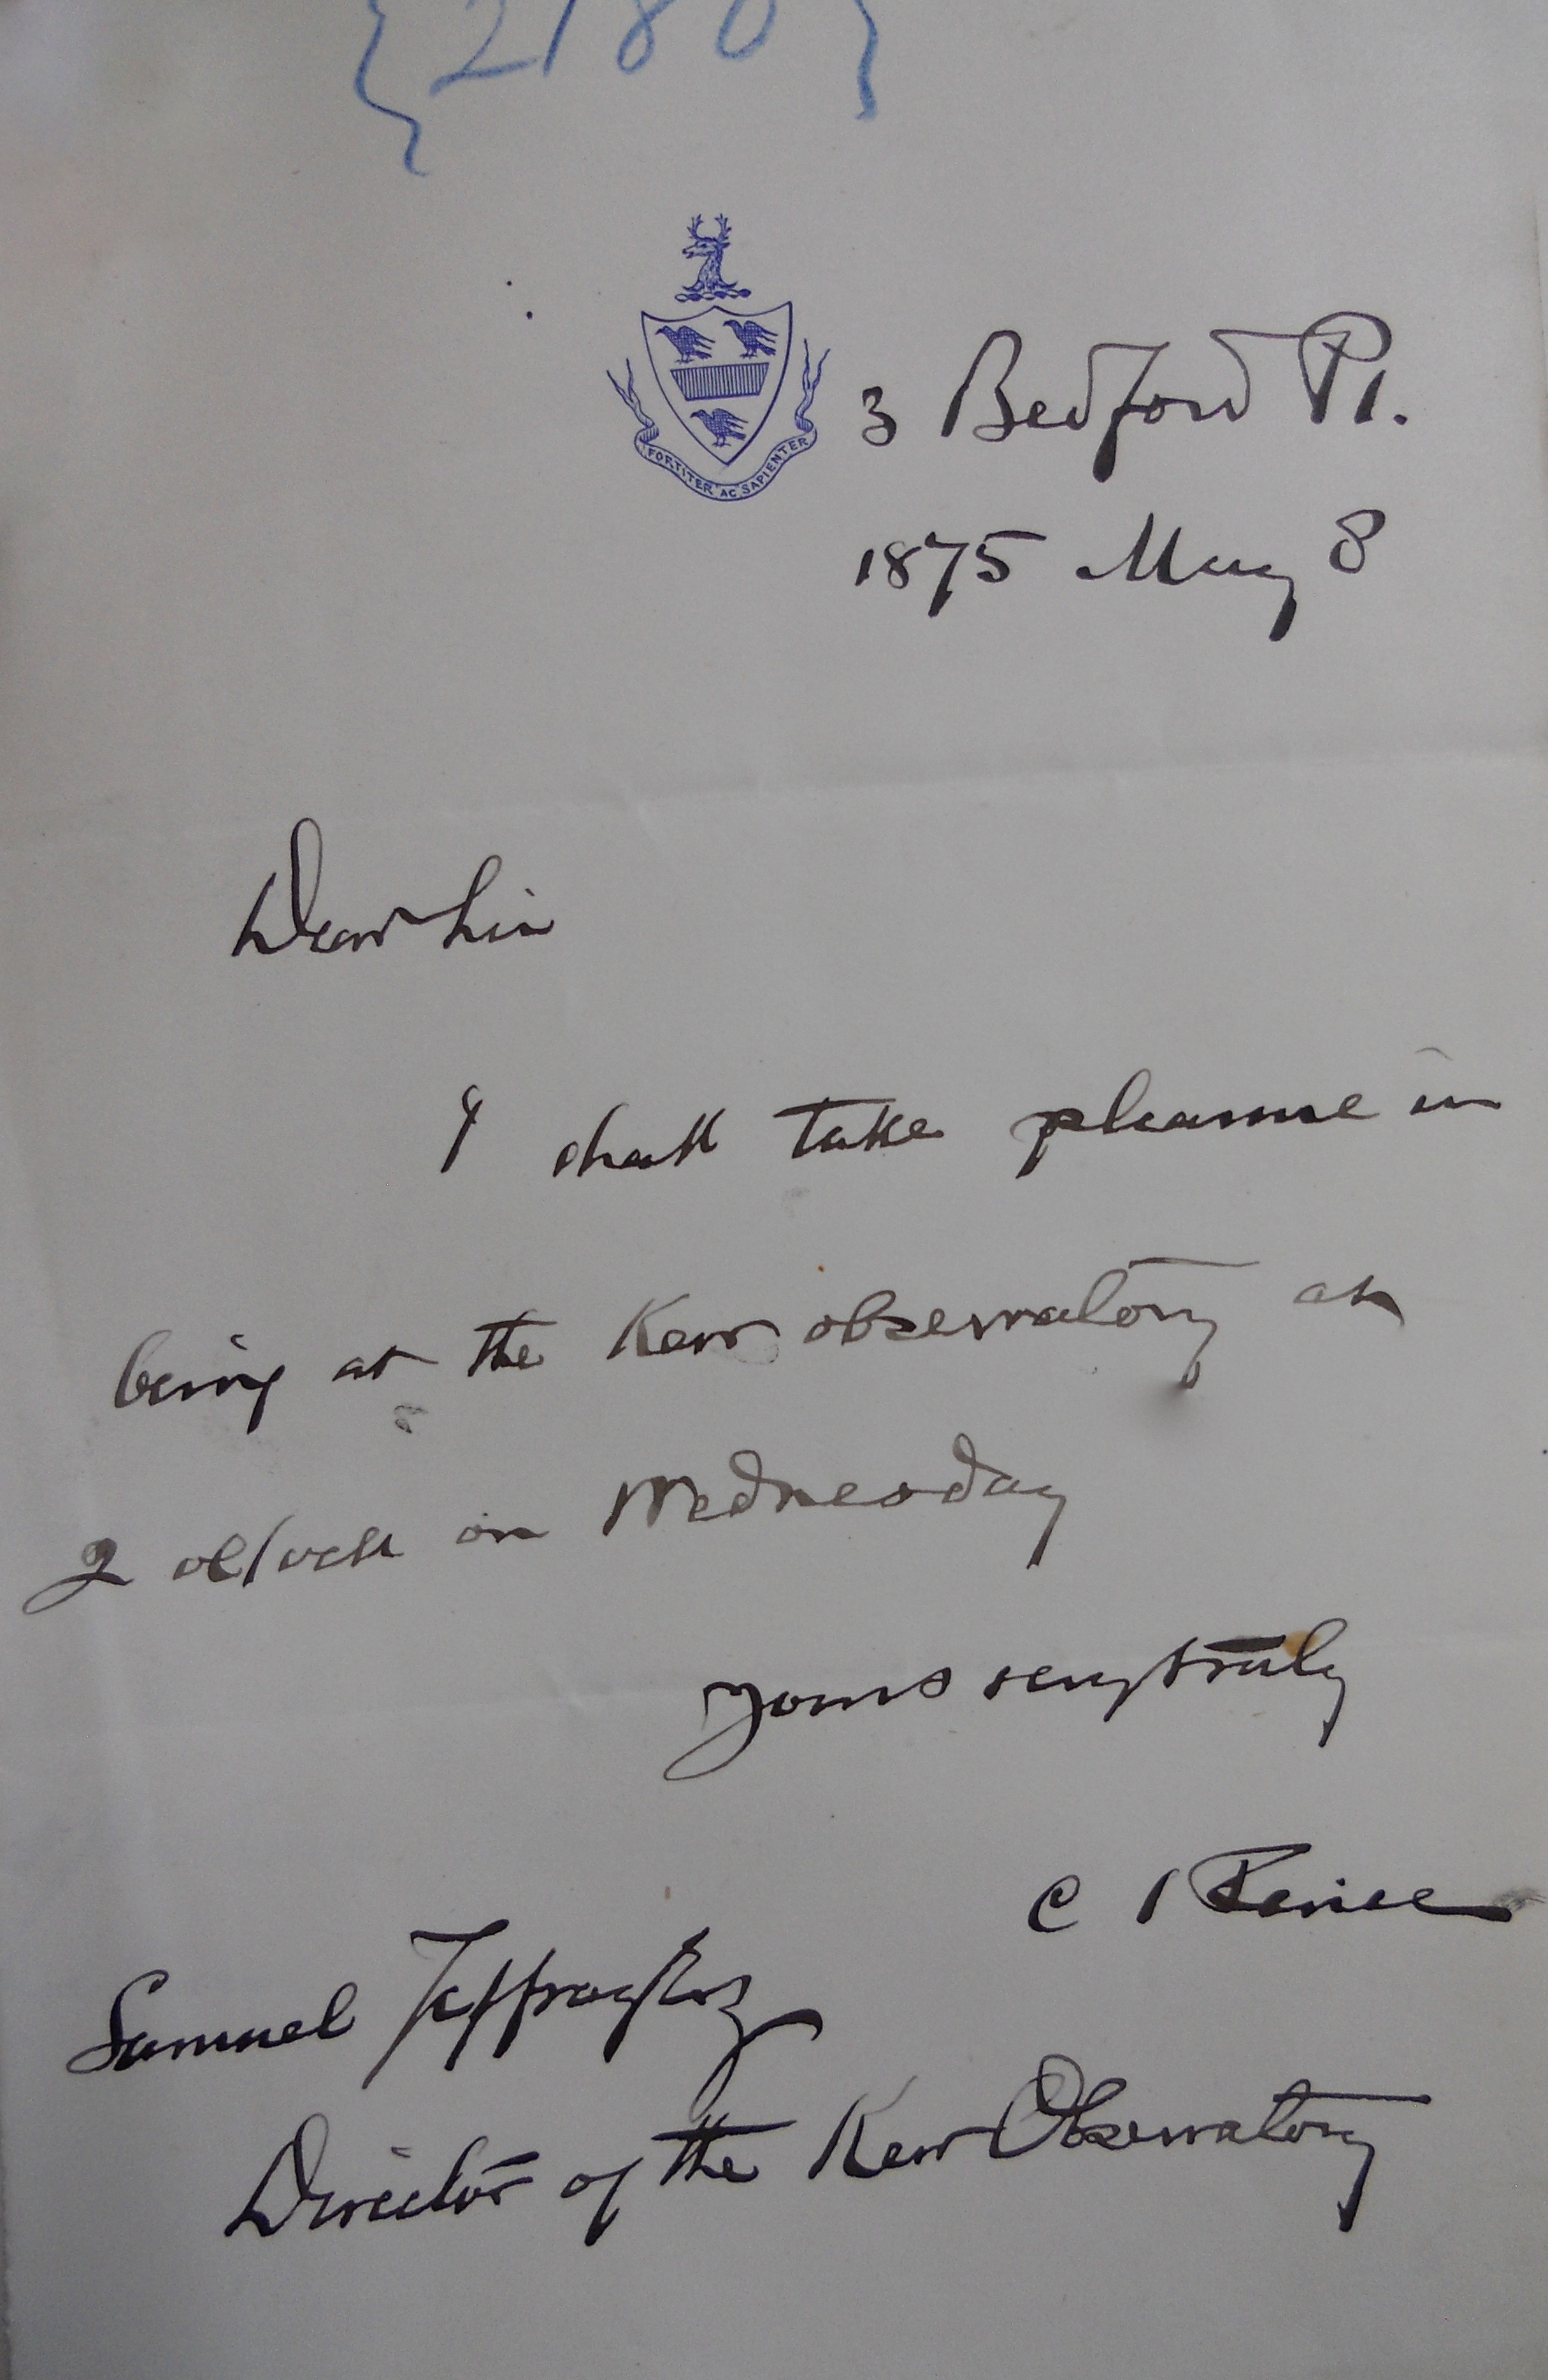 {2180}
FORTITER AC SAPIENTER
3 Bedford Pl.
1875 May 8
Dear Sir
I shall take pleasure in
being at the Kew observatory at
2 oclock on Wednesday
Yours very truly
C S Peirce
Samuel Jeffrey Esq
Director of the Kew Observatory